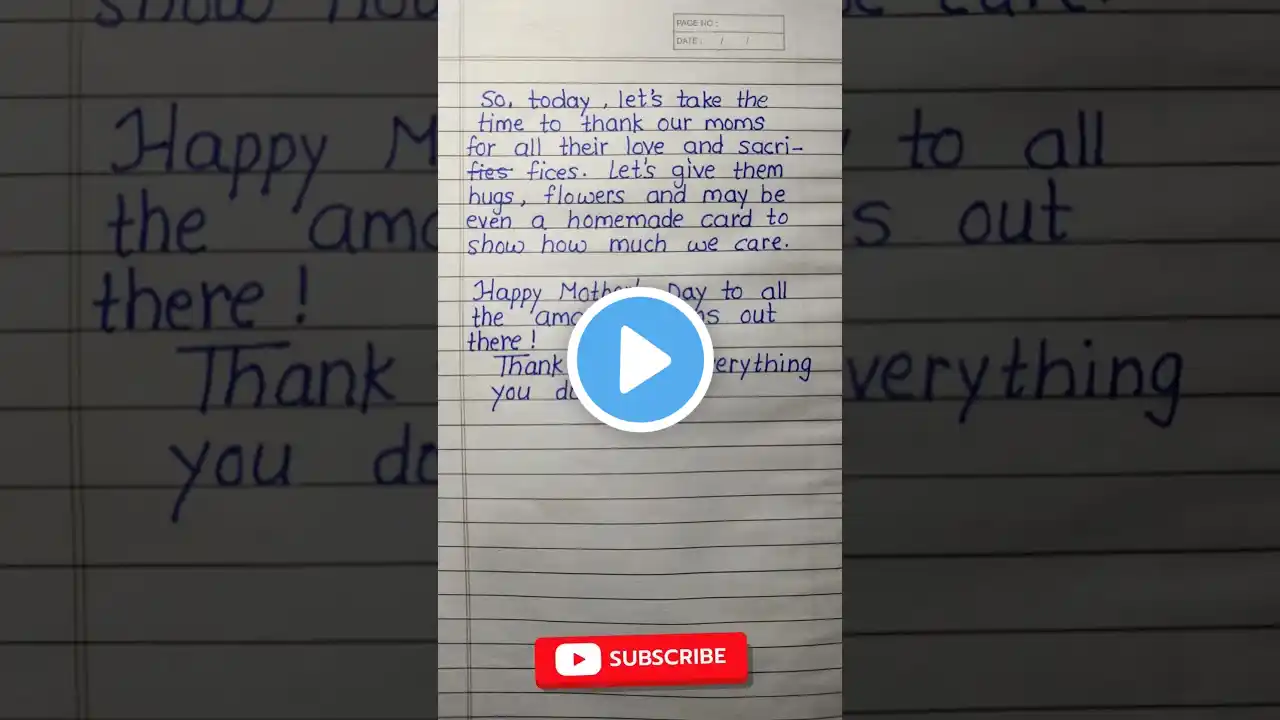 PAGE NO :
DATE : / /
So, today, let's take the
time to thank our moms
for all their love and sacri-
fies fices. Let's give them
hugs, flowers and may be
even a homemade card to
show how much we care.
Happy Mother's Day to all
the out
there!
Thank everything
you
SUBSCRIBE